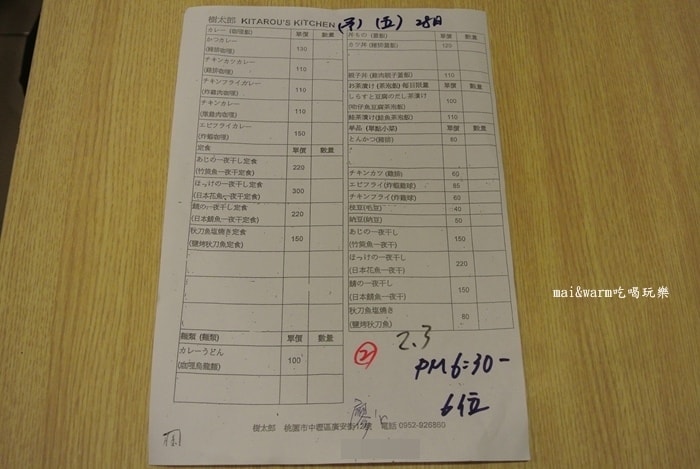 樹太郎 KITAROU'S KITCHEN (平) (五) 28日
カレー (咖哩飯) 單價 數量
かつカレー
(豬排咖哩) 130
チキンカツカレー
(雞排咖哩) 110
チキンフライカレー
(炸雞肉咖哩) 110
チキンカレー
(雞肉咖哩) 110
エビフライカレー
(炸蝦咖哩) 150
定食 單價 數量
あじの一夜干し定食
(竹筴魚一夜干定食) 220
ほっけの一夜干し定食
(日本花魚一夜干定食) 300
鯖の一夜干し定食
(日本鯖魚一夜干定食) 220
秋刀魚塩焼き定食
(鹽烤秋刀魚定食) 150
麵類 (麵類) 單價 數量
カレーうどん
(咖哩烏龍麵) 100
丼もの (蓋飯) 單價 數量
カツ丼 (豬排蓋飯) 120
親子丼 (雞肉親子蓋飯) 110
お茶漬け (茶泡飯) 每日限量 單價 數量
しらすと豆腐のだし茶漬け
(吻仔魚豆腐茶泡飯) 100
鮭茶漬け (鮭魚茶泡飯) 110
單品 (單點小菜) 單價 數量
とんかつ(豬排) 80
チキンカツ (雞排) 60
エビフライ(炸蝦) 85
チキンフライ(炸雞球) 60
枝豆(毛豆) 40
納豆(納豆) 50
あじの一夜干し
(竹筴魚一夜干) 150
ほっけの一夜干し
(日本花魚一夜干) 220
鯖の一夜干し
(日本鯖魚一夜干) 150
秋刀魚塩焼き
(鹽烤秋刀魚) 80
② 2.3
PM6:30-
6位
樹太郎 桃園市中壢區廣安街12號 電話 0952-026860
mai&warm吃喝玩樂